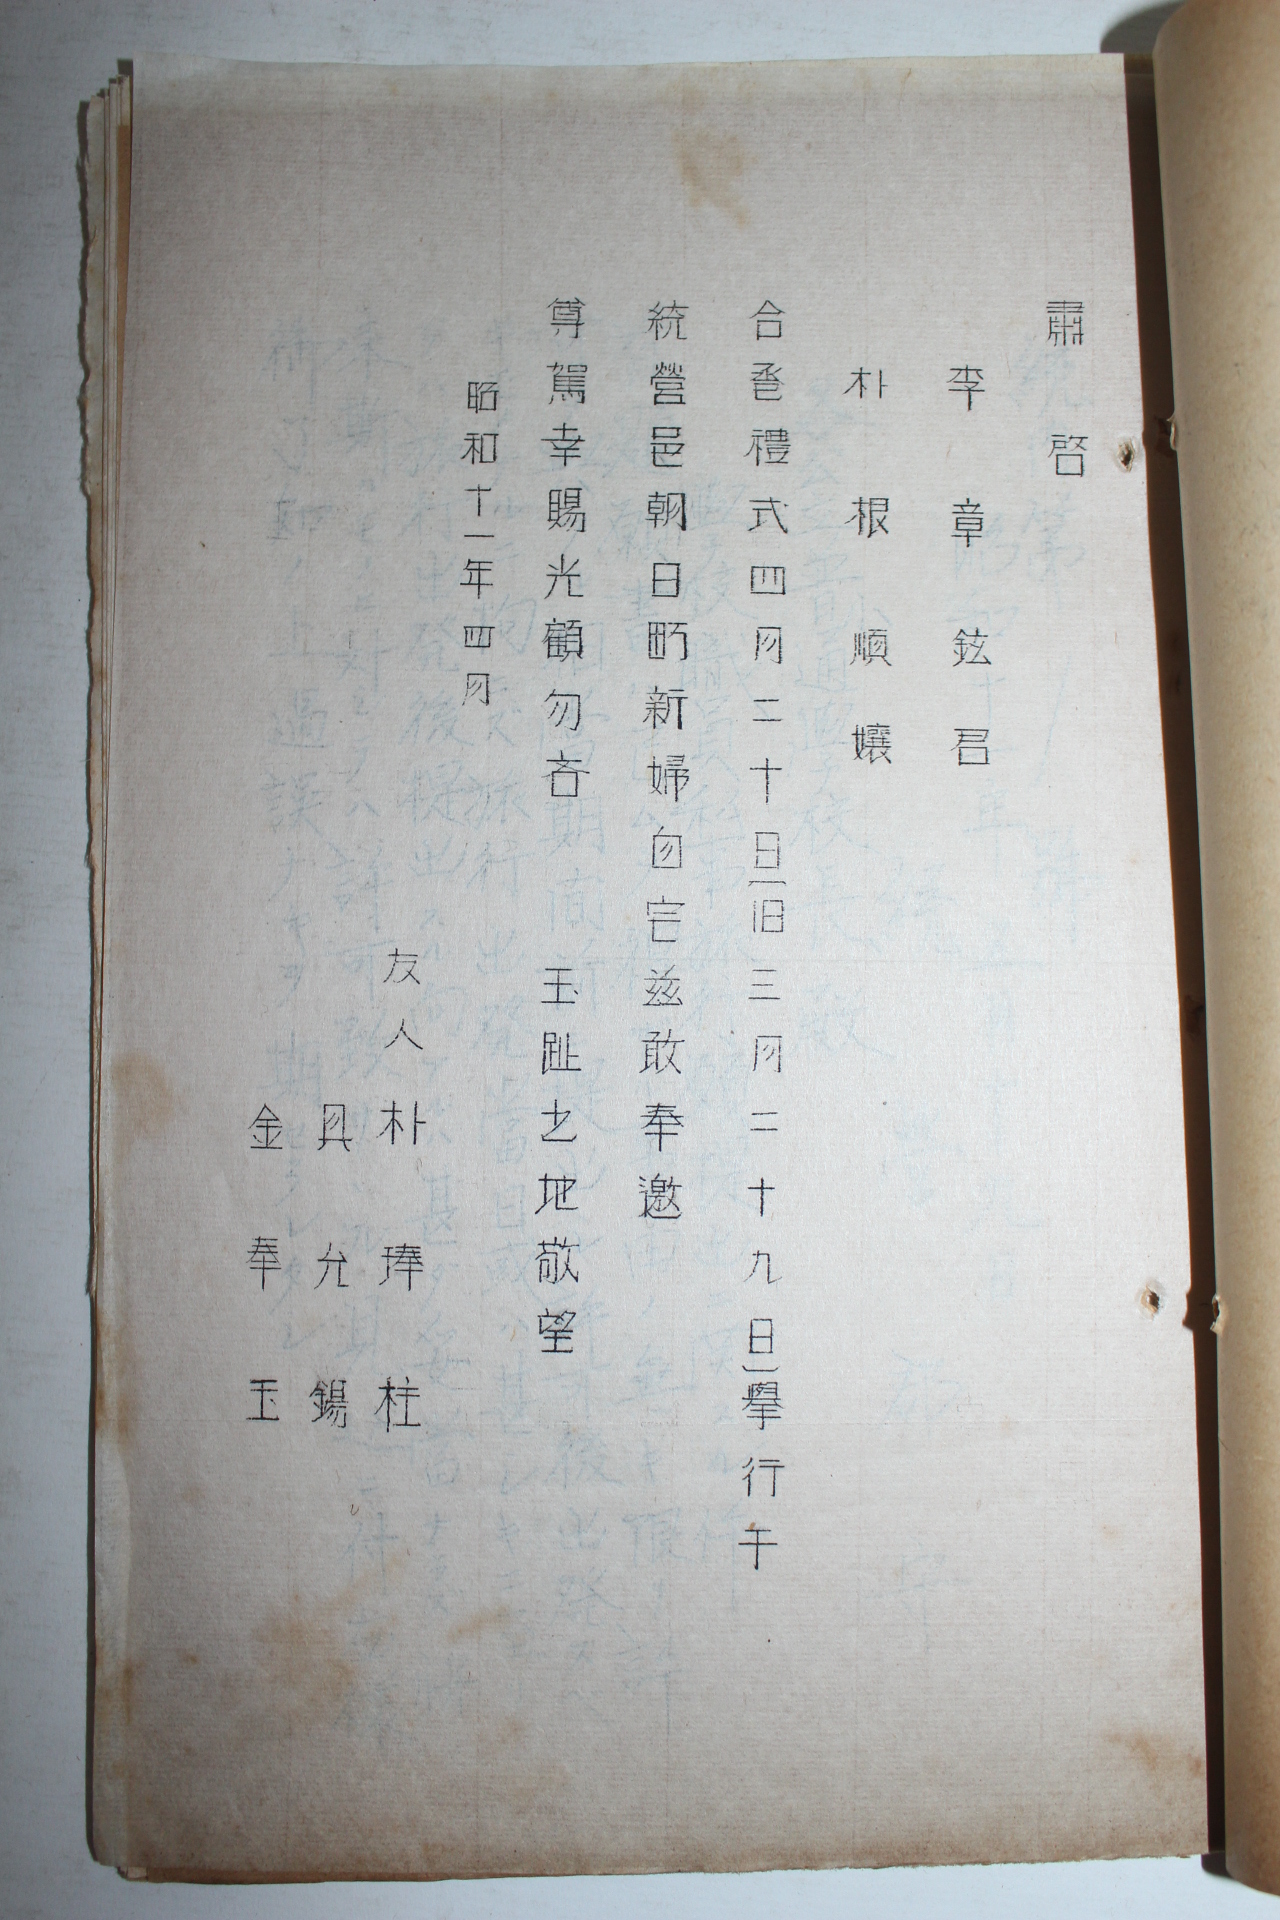 肅啓
李章鉉君
朴根順孃
合巹禮式四月二十日(旧三月二十九日)擧行于
統營邑朝日町新婦自宅玆敢奉邀
尊駕幸賜光顧勿吝 玉趾之地敬望
昭和十一年四月
友人 朴琫柱
具允錫
金奉玉